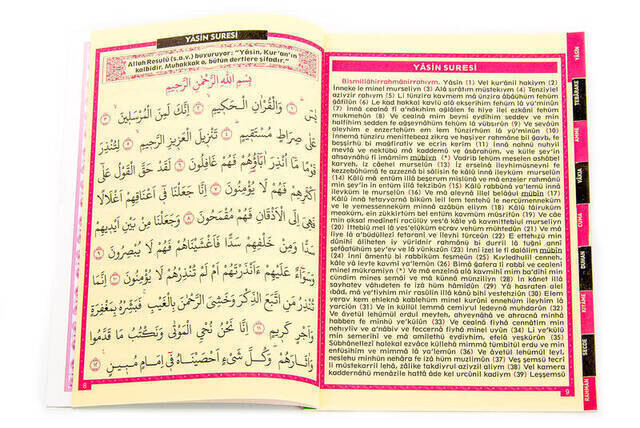 YÂSİN SURESİ
Allah Resulü (s.a.v.) buyuruyor: "Yâsin, Kur'an'ın
kalbidir. Muhakkak o, bütün dertlere şifadır."
بِسْمِ اللّٰهِ الرَّحْمٰنِ الرَّحِيمِ
يٰسٓ ﴿١﴾ وَالْقُرْاٰنِ الْحَكِيمِ ﴿٢﴾ اِنَّكَ لَمِنَ الْمُرْسَلِينَ ﴿٣﴾
عَلٰى صِرَاطٍ مُسْتَقِيمٍ ﴿٤﴾ تَنْزِيلَ الْعَزِيزِ الرَّحِيمِ ﴿٥﴾ لِتُنْذِرَ
قَوْمًا مَا اُنْذِرَ اٰبَاؤُهُمْ فَهُمْ غَافِلُونَ ﴿٦﴾ لَقَدْ حَقَّ الْقَوْلُ عَلٰى
اَكْثَرِهِمْ فَهُمْ لَا يُؤْمِنُونَ ﴿٧﴾ اِنَّا جَعَلْنَا فِى اَعْنَاقِهِمْ اَغْلَالًا
فَهِىَ اِلَى الْاَذْقَانِ فَهُمْ مُقْمَحُونَ ﴿٨﴾ وَجَعَلْنَا مِنْ بَيْنِ اَيْدِيهِمْ
سَدًّا وَمِنْ خَلْفِهِمْ سَدًّا فَاَغْشَيْنَاهُمْ فَهُمْ لَا يُبْصِرُونَ ﴿٩﴾
وَسَوَاءٌ عَلَيْهِمْ ءَاَنْذَرْتَهُمْ اَمْ لَمْ تُنْذِرْهُمْ لَا يُؤْمِنُونَ ﴿١٠﴾ اِنَّمَا
تُنْذِرُ مَنِ اتَّبَعَ الذِّكْرَ وَخَشِىَ الرَّحْمٰنَ بِالْغَيْبِ فَبَشِّرْهُ بِمَغْفِرَةٍ
وَاَجْرٍ كَرِيمٍ ﴿١١﴾ اِنَّا نَحْنُ نُحْيِى الْمَوْتٰى وَنَكْتُبُ مَا قَدَّمُوا
وَاٰثَارَهُمْ وَكُلَّ شَىْءٍ اَحْصَيْنَاهُ فِى اِمَامٍ مُبِينٍ ﴿١٢﴾
8
YÂSİN SURESİ
Bismillâhirrahmânirrahıym. Yâsin (1) Vel kurânil hakiym (2)
İnneke le minel murseliyn (3) Alâ sırâtım müstekıym (4) Tenziylel
aziyzir rahıym (5) Li tünzira kavmem mâ ünzira âbâühüm fehüm
ğâfilûn (6) Le kad hakkal kavlü alâ ekserihim fehüm lâ yü'minûn
(7) İnnâ cealnâ fî a'nâkıhim ağlâlen fe hiye ilel ezkâni fehüm
mukmehûn (8) Ve cealnâ mim beyni eydîhim seddev ve min
halfihim sedden fe ağşeynâhüm fehüm lâ yübsırûn (9) Ve sevâün
aleyhim e enzertehüm em lem tünzirhüm lâ yü'minûn (10)
İnnemâ tünziru menittebeaz zikra ve haşiyer rahmâne bil ğayb, fe
beşşirhü bi mağfirativ ve ecrin kerim (11) İnnâ nahnü nuhyil
mevtâ ve nektübü mâ kaddemû ve âsârahüm, ve külle şey'in
ahsaynâhü fî imâmim mübiyn (*) Vadrib lehüm meselen ashâbel
karyeh, iz câehel murselûn (13) İz erselnâ ileyhimüsneyni fe
kezzebûhümâ fe azzeznâ bi sâlisin fe kâlû innâ ileyküm murselûn
(14) Kâlû mâ entüm illâ beşerum mislünâ ve mâ enzeler rahmânü
min şey'in in entüm illâ tekzibûn (15) Kâlû rabbünâ ya'lemü innâ
ileyküm le murselûn (16) Ve mâ aleynâ illel belâğul mübin (17)
Kâlû innâ tetayyernâ biküm leil lem tentehû le nercümenneküm
ve le yemessenneküm minnâ azâbün eliym (18) Kâlû tâiruküm
meaküm, ein zükkirtüm bel entüm kavmüm müsrifûn (19) Ve câe
min aksal medîneti racülüy yes'â kâle yâ kavmittebiul murseliyn
(20) İttebiû mel lâ yes'elüküm ecrav vehüm mühtedûn (21) Ve mâ
liye lâ a'büdüllezî fetaranî ve ileyhi türceûn (22) E ettehızü min
dûnihî âliheten iy yüridnir rahmânü bi durril lâ tuğni annî
şefâatühüm şey'ev ve lâ yünkızûn (23) İnnî izel le fî dalâlim mübin
(24) İnnî âmentü bi rabbiküm fesmeûn (25) Kıyledhulil cenneh,
kâle yâ leyte kavmî ya'lemûn (26) Bimâ ğafera lî rabbî ve cealenî
minel mükramiyn (*) Ve mâ enzelnâ alâ kavmihî mim ba'dihî min
cündim mines semâi ve mâ künnâ münziliyn (28) İn kânet illâ
sayhatev vâhideten fe izâ hüm hâmidûn (29) Yâ hasraten alel
ibâd, mâ ye'tiyhim mir rasûlin illâ kânû bihî yestehziûn (30) Elem
yerav kem ehleknâ kablehüm minel kurûni ennehüm ileyhim lâ
yarciûn (31) Ve in küllül lemmâ cemiy'ul ledeynâ muhdarûn (32)
Ve âyetül lehümül erdul meyteh, ahyeynâhâ ve ahracnâ minhâ
habben fe minhü ye'külûn (33) Ve cealnâ fîyhâ cennâtim min
nehıyliv ve a'nâbiv ve feccernâ fîyhâ minel uyûn (34) Li ye'külû
min semerihî ve mâ amilethü eydiyhim, efelâ yeşkürûn (35)
Sübhânellezî halekal ezvâce küllehâ mimmâ tümbitül erdu ve min
enfüsihim ve mimmâ lâ ya'lemûn (36) Ve âyetül lehümül leyl,
neslehu minhün nehâra fe izâ hüm muzlimûn (37) Veş şemsü tecrî
li müstekarril lehâ, zâlike takdiyrul aziyzil aliym (38) Vel kamera
kaddernâhü menâzile hattâ âde kel urcûnil kadiym (39) Leşşemsü
9
YÂSİN
TEBÂREKE
AMME
VÂKIA
CUMA
DUHAN
KIYÂME
SECDE
RAHMÂN